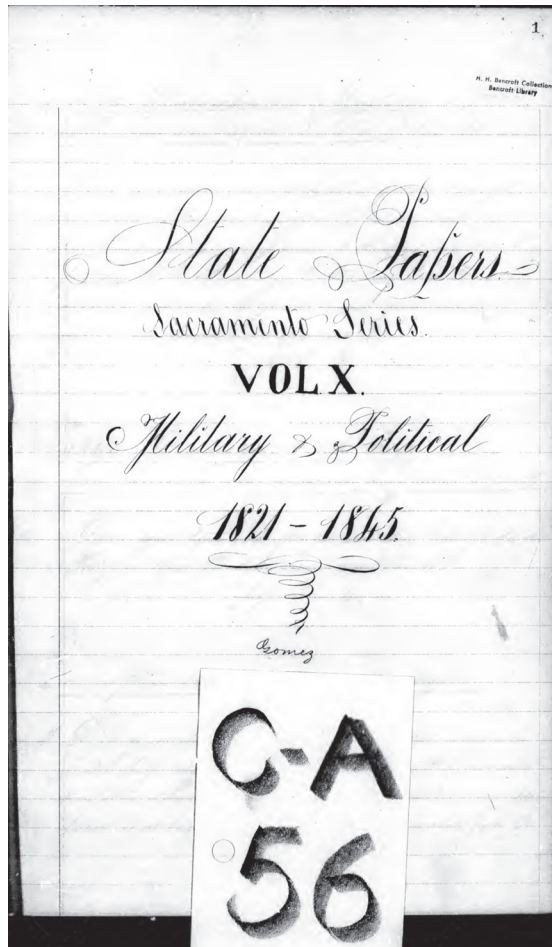 1
H. H. Bancroft Collection
Bancroft Library
State Papers
Sacramento Series.
VOL X.
Military & Political
1821 - 1845.
Gomez
C-A
56